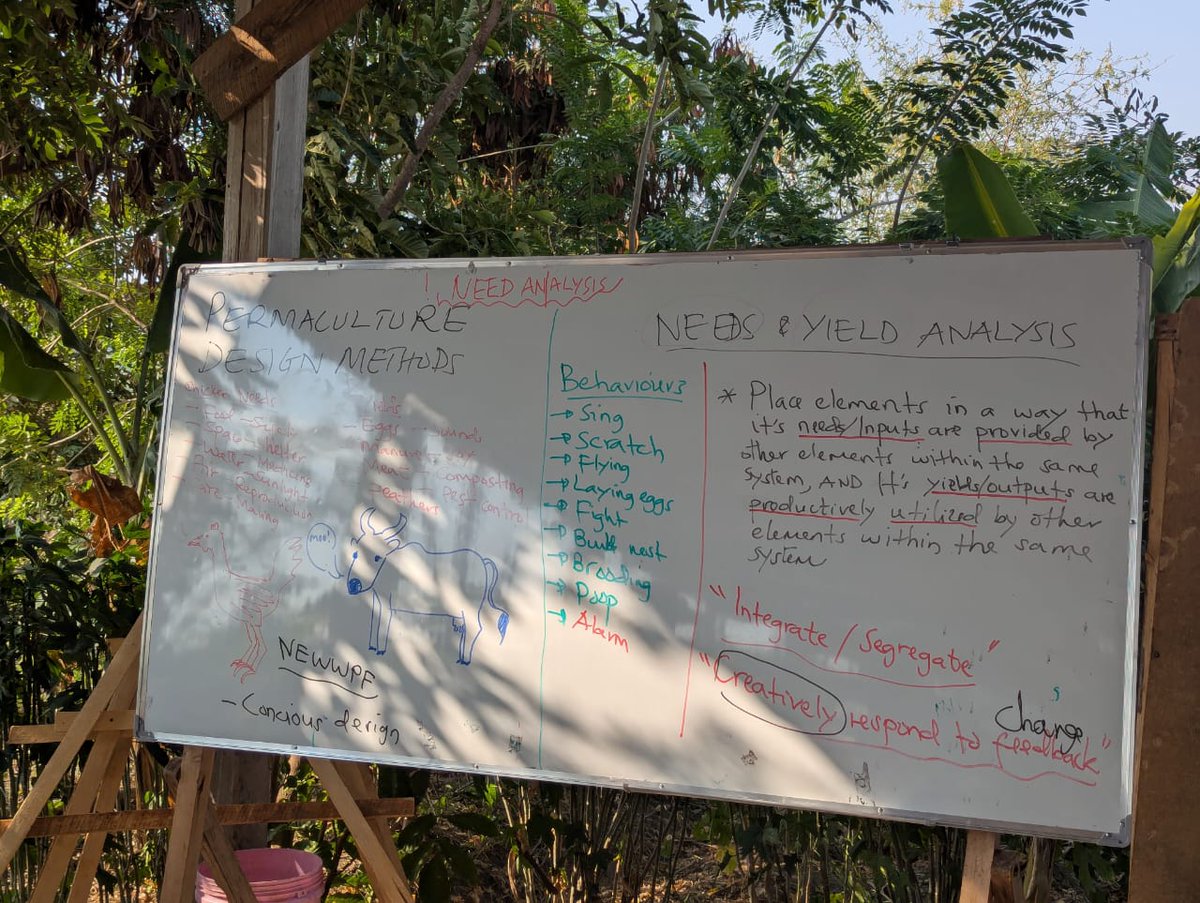 1. NEED ANALYSIS
PERMACULTURE
DESIGN METHODS
chicken Needs
- Food
- Space - shelter
- Water - Medicine
- Air - Sunlight
- Reproduction
- Eggs - sounds
manure
composting
Feathers - Pest control
moo!
NEWWPF
- Concious design
Behaviours
→ Sing
→ Scratch
→ Flying
→ Laying eggs
→ Fight
→ Built nest
→ Brooding
→ Poop
→ Alarm
NEEDS & YIELD ANALYSIS
* Place elements in a way that
it's needs/Inputs are provided by
other elements within the same
system, AND It's yields/outputs are
productively utilized by other
elements within the same
system
"Integrate / Segregate"
Change
"Creatively respond to feedback"